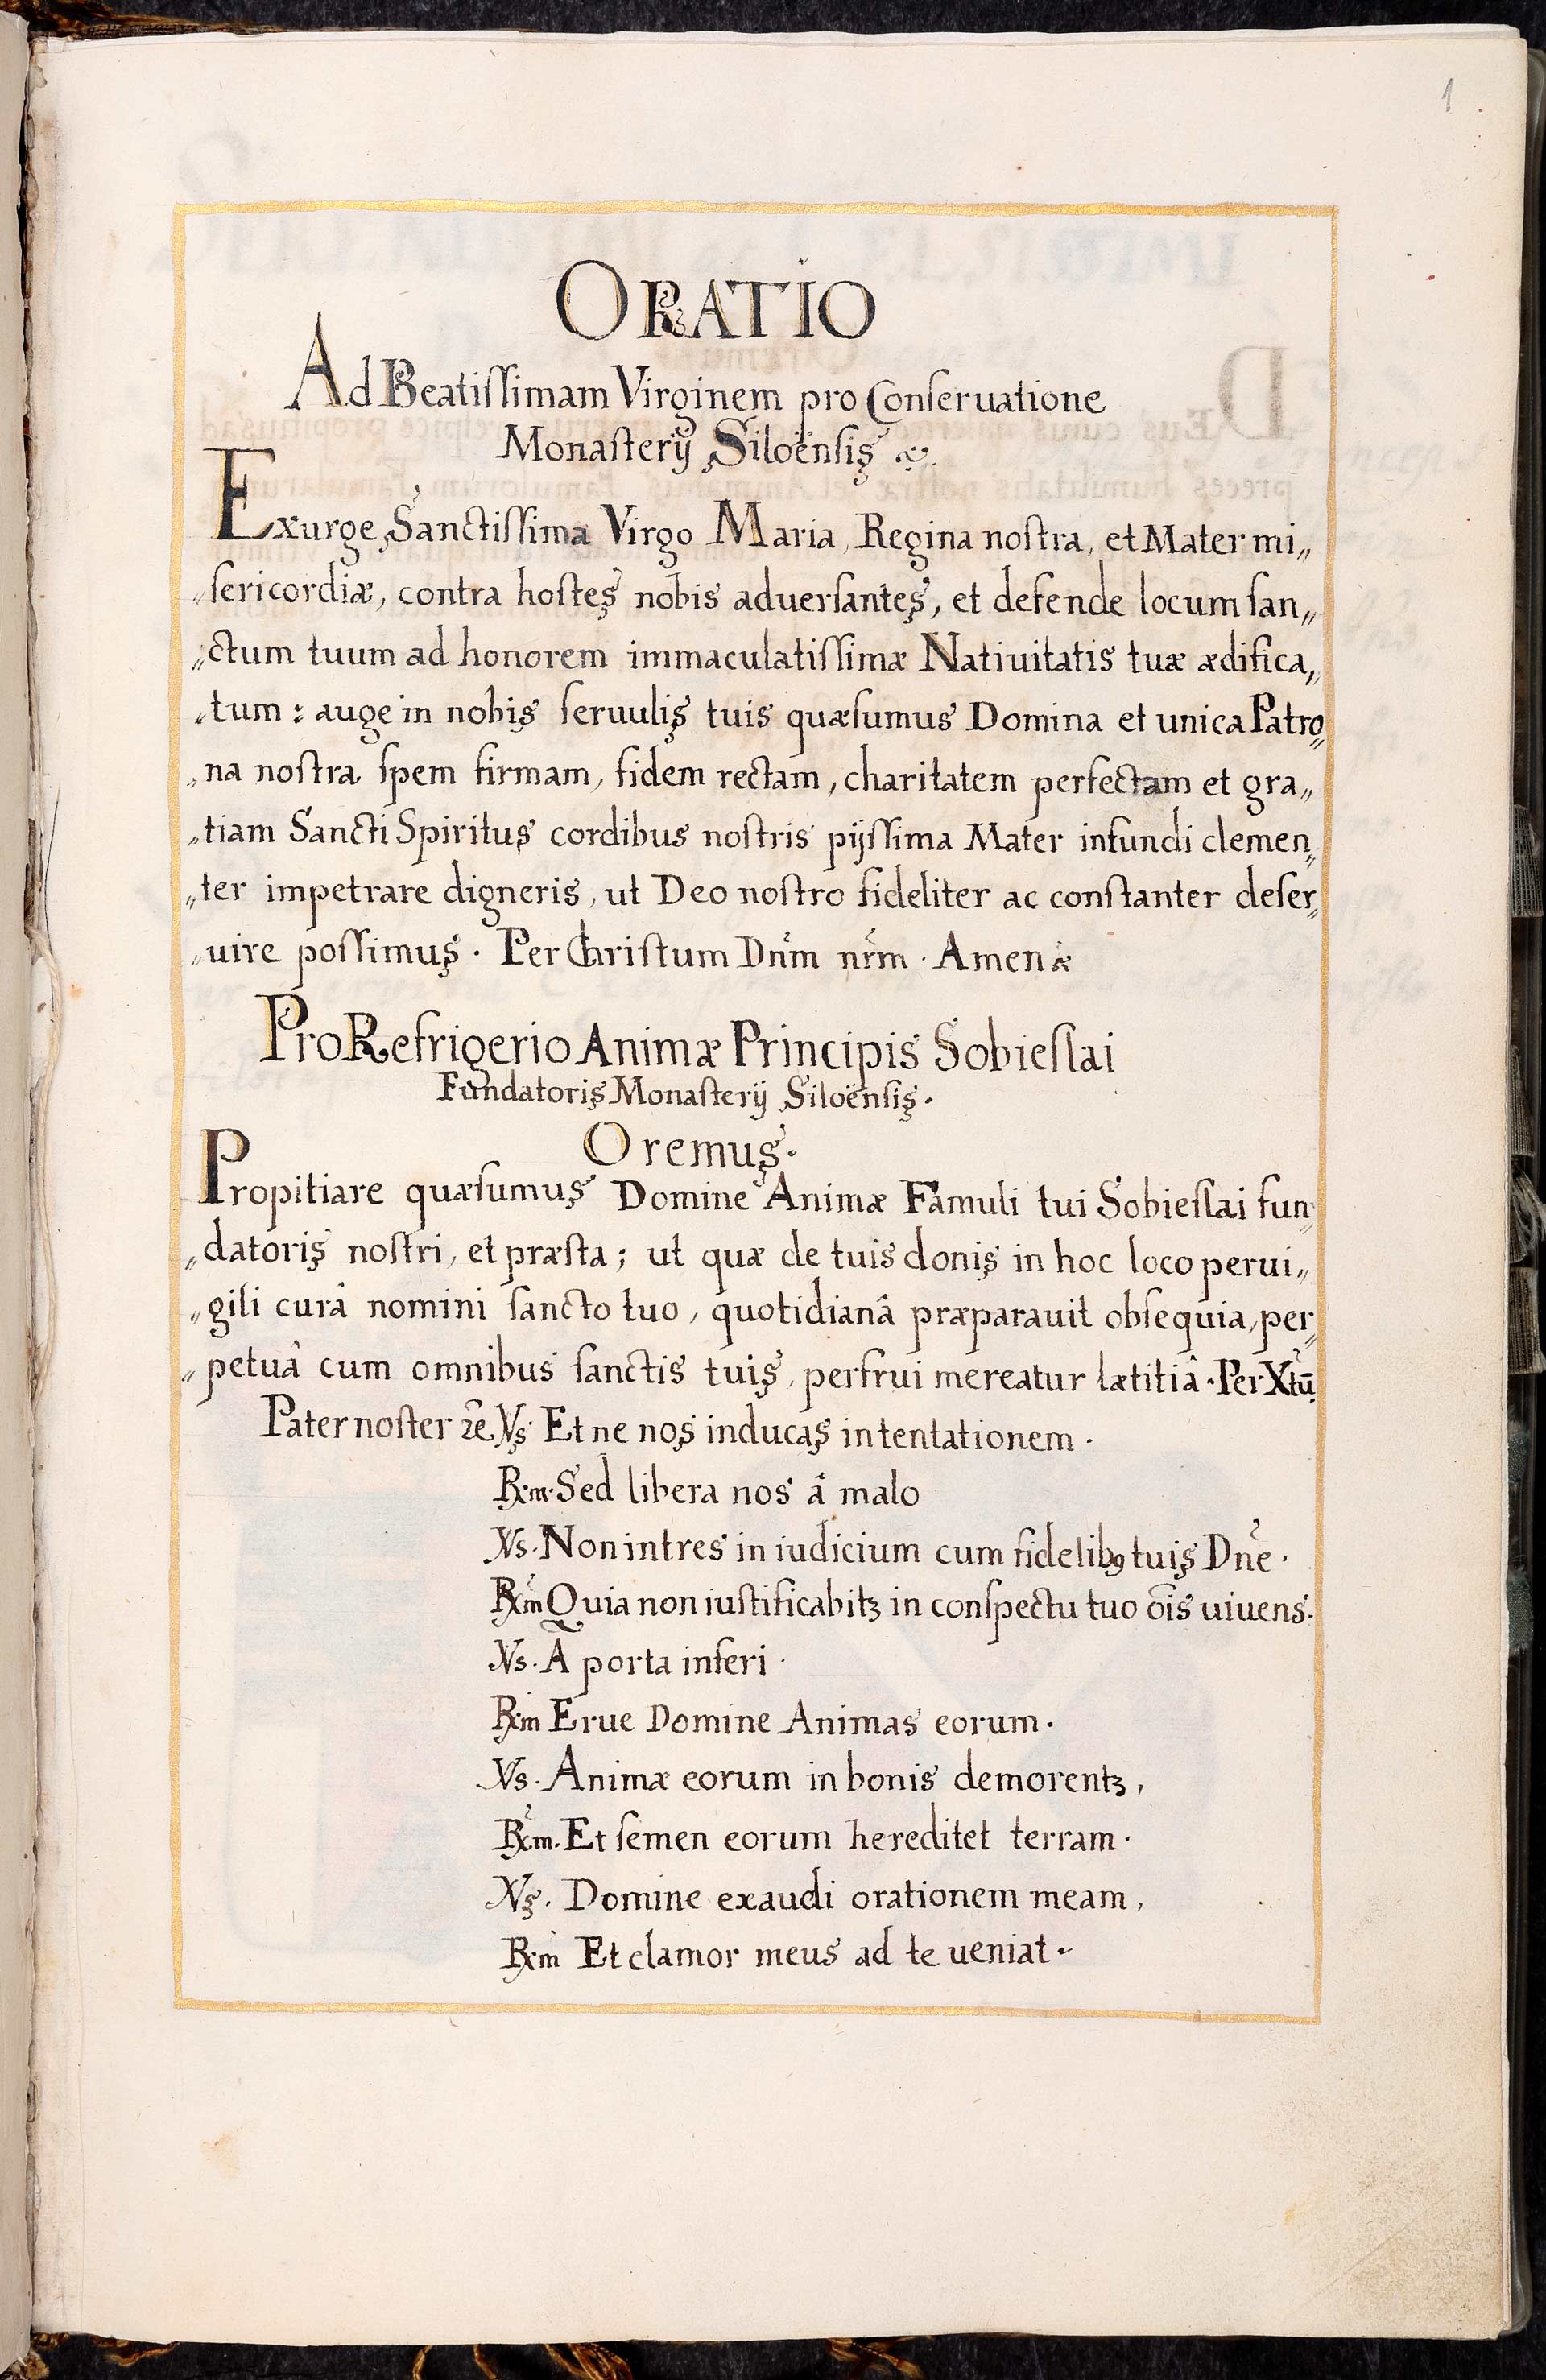 1
ORATIO
Ad Beatiſſimam Virginem pro Conſeruatione
Monaſterij Siloënſis &.
Exurge Sanctiſſima Virgo Maria, Regina noſtra, et Mater mi„
„ſericordiæ, contra hoſtes nobis aduerſantes, et defende locum ſan„
„ctum tuum ad honorem immaculatiſſimæ Natiuitatis tuæ ædifica„
„tum: auge in nobis ſeruulis tuis quæſumus Domina et unica Patro„
„na noſtra ſpem firmam, fidem rectam, charitatem perfectam et gra„
„tiam Sancti Spiritus cordibus noſtris pijſſima Mater infundi clemen„
„ter impetrare digneris, ut Deo noſtro fideliter ac conſtanter deſer„
„uire poſſimus. Per Chriſtum Dnm̃ nrm̃. Amen &
Pro Refrigerio Animæ Principis Sobieſlai
Fundatoris Monaſterij Siloënſis.
Oremus.
Propitiare quæſumus Domine Animæ Famuli tui Sobieſlai fun„
„datoris noſtri, et præſta; ut quæ de tuis donis in hoc loco perui„
„gili curâ nomini ſancto tuo, quotidianâ præparauit obſequia, per„
„petuâ cum omnibus ſanctis tuis, perfrui mereatur lætitiâ. Per Xtũ.
Pater noſter ꝛc̃ Vs. Et ne nos inducas in tentationem.
℞m. Sed libera nos â malo
Vs. Non intres in iudicium cum fidelibꝯ tuis Dnẽ.
℞m Quia non iuſtificabitꝫ in conſpectu tuo oĩs uiuens.
Vs. A porta inferi.
℞m Erue Domine Animas eorum.
Vs. Animæ eorum in bonis demorentꝫ,
℞m. Et ſemen eorum hereditet terram.
Vs. Domine exaudi orationem meam,
℞m Et clamor meus ad te ueniat.